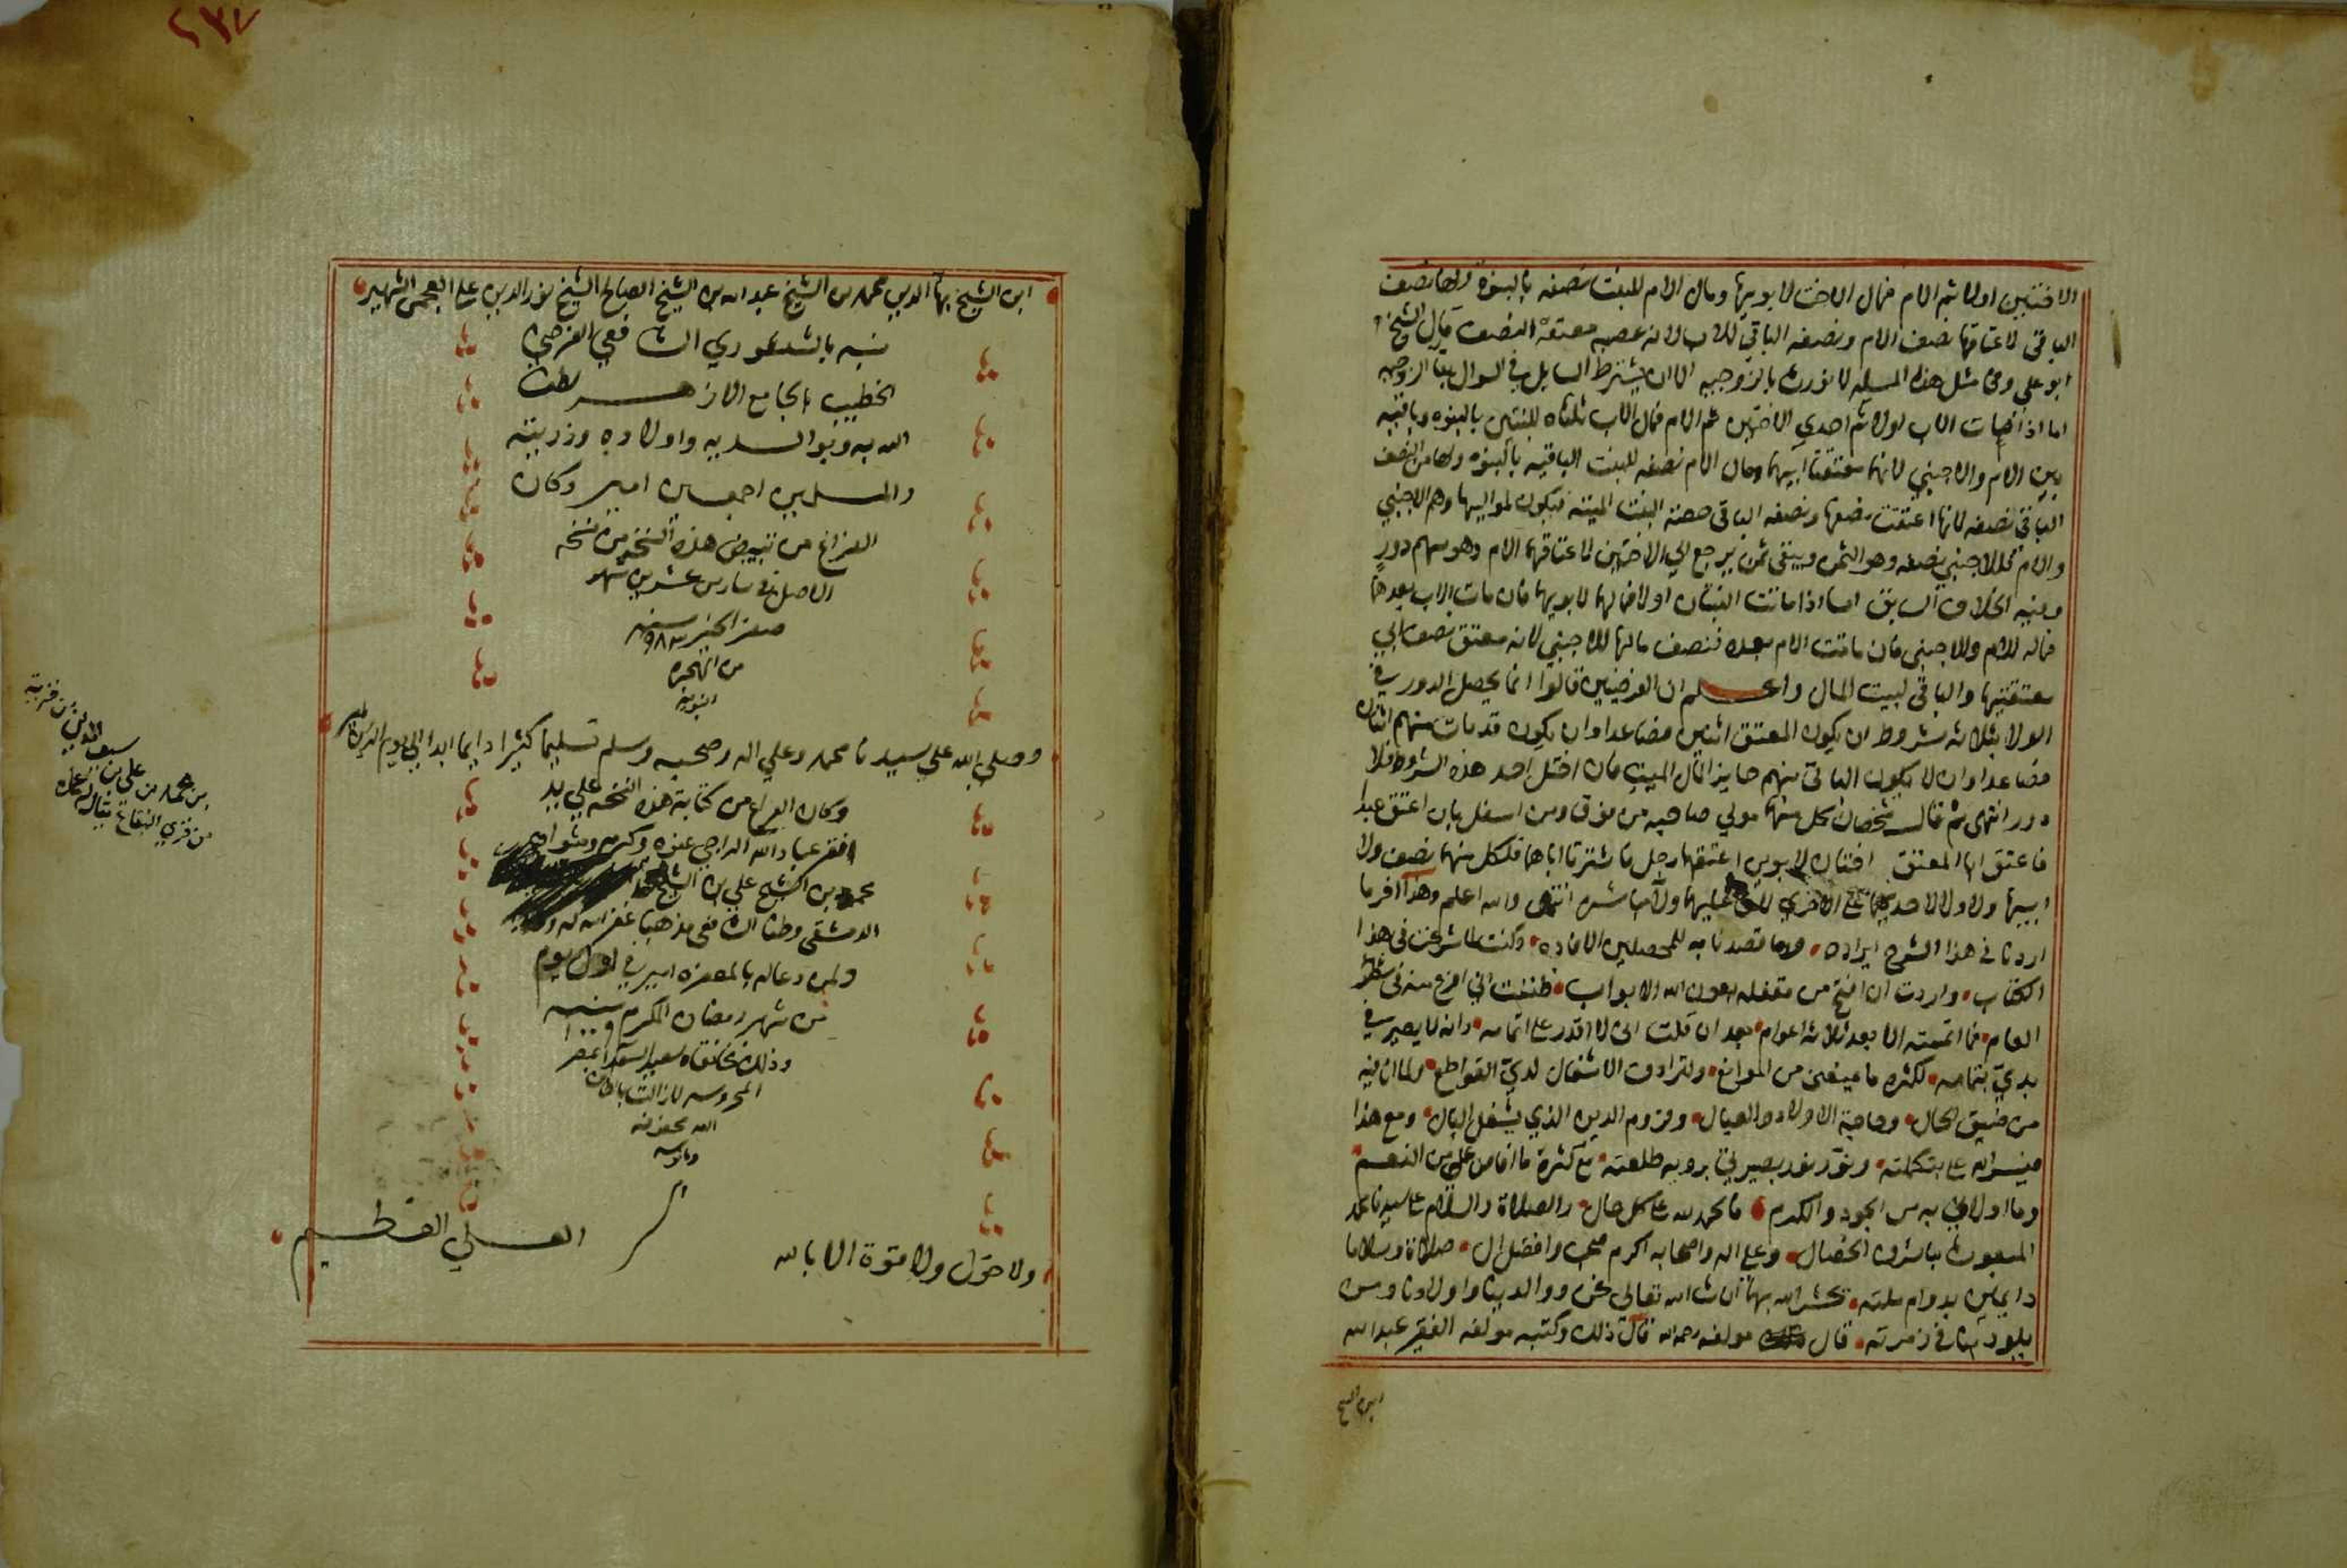 الاختين اولا ثم الام فمال الاخت لابويها ومال الام للبنت نصفه بالبنوة ولها نصف
الباقي لاعتاقها نصف الام ونصفه الباقي للاب لانه عصبه معتقة النصف قال الشيخ
ابو علي وفي مثل هذه المسيله لا نورث بالزوجيه الا ان يشترط السايل في السوال بقا الزوجيه
اما اذا مات الاب اولا ثم احدي الاختين ثم الام فمال الاب ثلثاه للبنتين بالبنوه وباقيه
بين الام والاجنبي لانهما معتقتا ابيهما ومال الام نصفه للبنت الباقيه بالبنوه ولها من النصف
الباقي نصفه لانها اعتقت نصفها ونصفه الباقي حصة البنت الميتة فيكون لمواليها وهم الاجنبي
والام فللاجنبي نصفه وهو الثمن ويبقى ثمن يرجع الي الاختين لاعتاقهما الام وهو سهم دور
وفيه الخلاف السابق اما اذا ماتت البنتان اولا فمالهما لابويهما فان مات الاب بعدهما
فماله للام وللاجنبي فان ماتت الام بعده فنصف مالها للاجنبي لانه معتق نصف ابي
معتقتيها والباقي لبيت المال واعلم ان الفرضيين قالوا انما يحصل الدور في
الولا بثلاثه شروط ان يكون المعتق اثنين فصاعدا وان يكون قد مات منهم اثنان
فصاعدا وان لا يكون الباقي منهم حايز المال الميت فان اختل احد هذه الشروط فلا
دور انتهى ثم قال شخصان كل منهما مولي صاحبه من فوق ومن اسفل بان اعتق عبدا
فاعتق ابا المعتق اختان لابوين اعتقهما رجل فاشترتا اباهما فلكل منهما نصف ولا
ابيها ولا ولا لاحديهما على الاخري عليهما ولا مباشره انتهى والله اعلم وهذا اخر ما
اردنا في هذا الشرح ايراده وما قصدنا به للمحصلين الافاده وكنت لما شرعت في هذا
الكتاب واردت ان افتح من مقفله بعون الله الابواب ظننت اني افرغ منه في شطر
العام فما اتممته الا بعد ثلاثه اعوام بعد ان قلت اني لا اقدر على اتمامه وانه لا يصير في
يدي بتمامه لكثره ما عن من الموانع ولترادف الاشغال لدي القواطع ولما انا فيه
من ضيق الحال وحاجة الاولاد والعيال ولزوم الدين الذي يشغل البال ومع هذا
فيسر الله علي بتكملته ونور نور بصيرتي برويه طلعته مع كثرة ما افاض علي من النعم
وما اولاني به من الجود والكرم فالحمد لله على كل حال والصلاة والسلام على سيدنا محمد
المبعوث باشرف الخصال وعلى اله واصحابه اكرم صحب وافضل ال صلاة وسلاما
دايمين بدوام ملته يحشر الله بهما ان شاء الله تعالى نحن ووالدينا واولادنا ومن
يلوذ بنا في زمرته قال مولفه رحمه الله قال ذلك وكتبه مولفه الفقير عبد الله
ابن الشيخ
٢٣٧
ابن الشيخ بهاء الدين محمد بن الشيخ عبد الله بن الشيخ الصالح الشيخ نور الدين علي العجمي الشهير
نسبه بالشنشوري الشافعي الفرضي
الخطيب بالجامع الازهر لطف
الله به وبوالديه واولاده وذريته
والمسلمين اجمعين امين وكان
الفراغ من تبييض هذه النسخه من نسخه
الاصل في سادس عشرين شهر
صفر الخير سنه ٩٨٣
من الهجره
النبويه
وصلى الله على سيدنا محمد وعلي اله وصحبه وسلم تسليما كثيرا دايما ابدا الي يوم الدين
وكان الفراغ من كتابة هذه النسخه علي يد
افقر عباد الله الراجي عفوه وكرمه
محمد بن الشيخ علي بن الشيخ
الدمشقي وطنا الشافعي مذهبا غفر الله له
ولمن دعا له بالمغفره امين في اول يوم
من شهر رمضان المكرم سنه ١٠٠٠
وذلك بخانقاه سعيد السعدا بمصر
المحروسه لا زالت
الله محفوفه
ومانوسه
ولا حول ولا قوة الا بالله
العلي العظيم
بن محمد بن علي بن
من قري البقاع يقال له